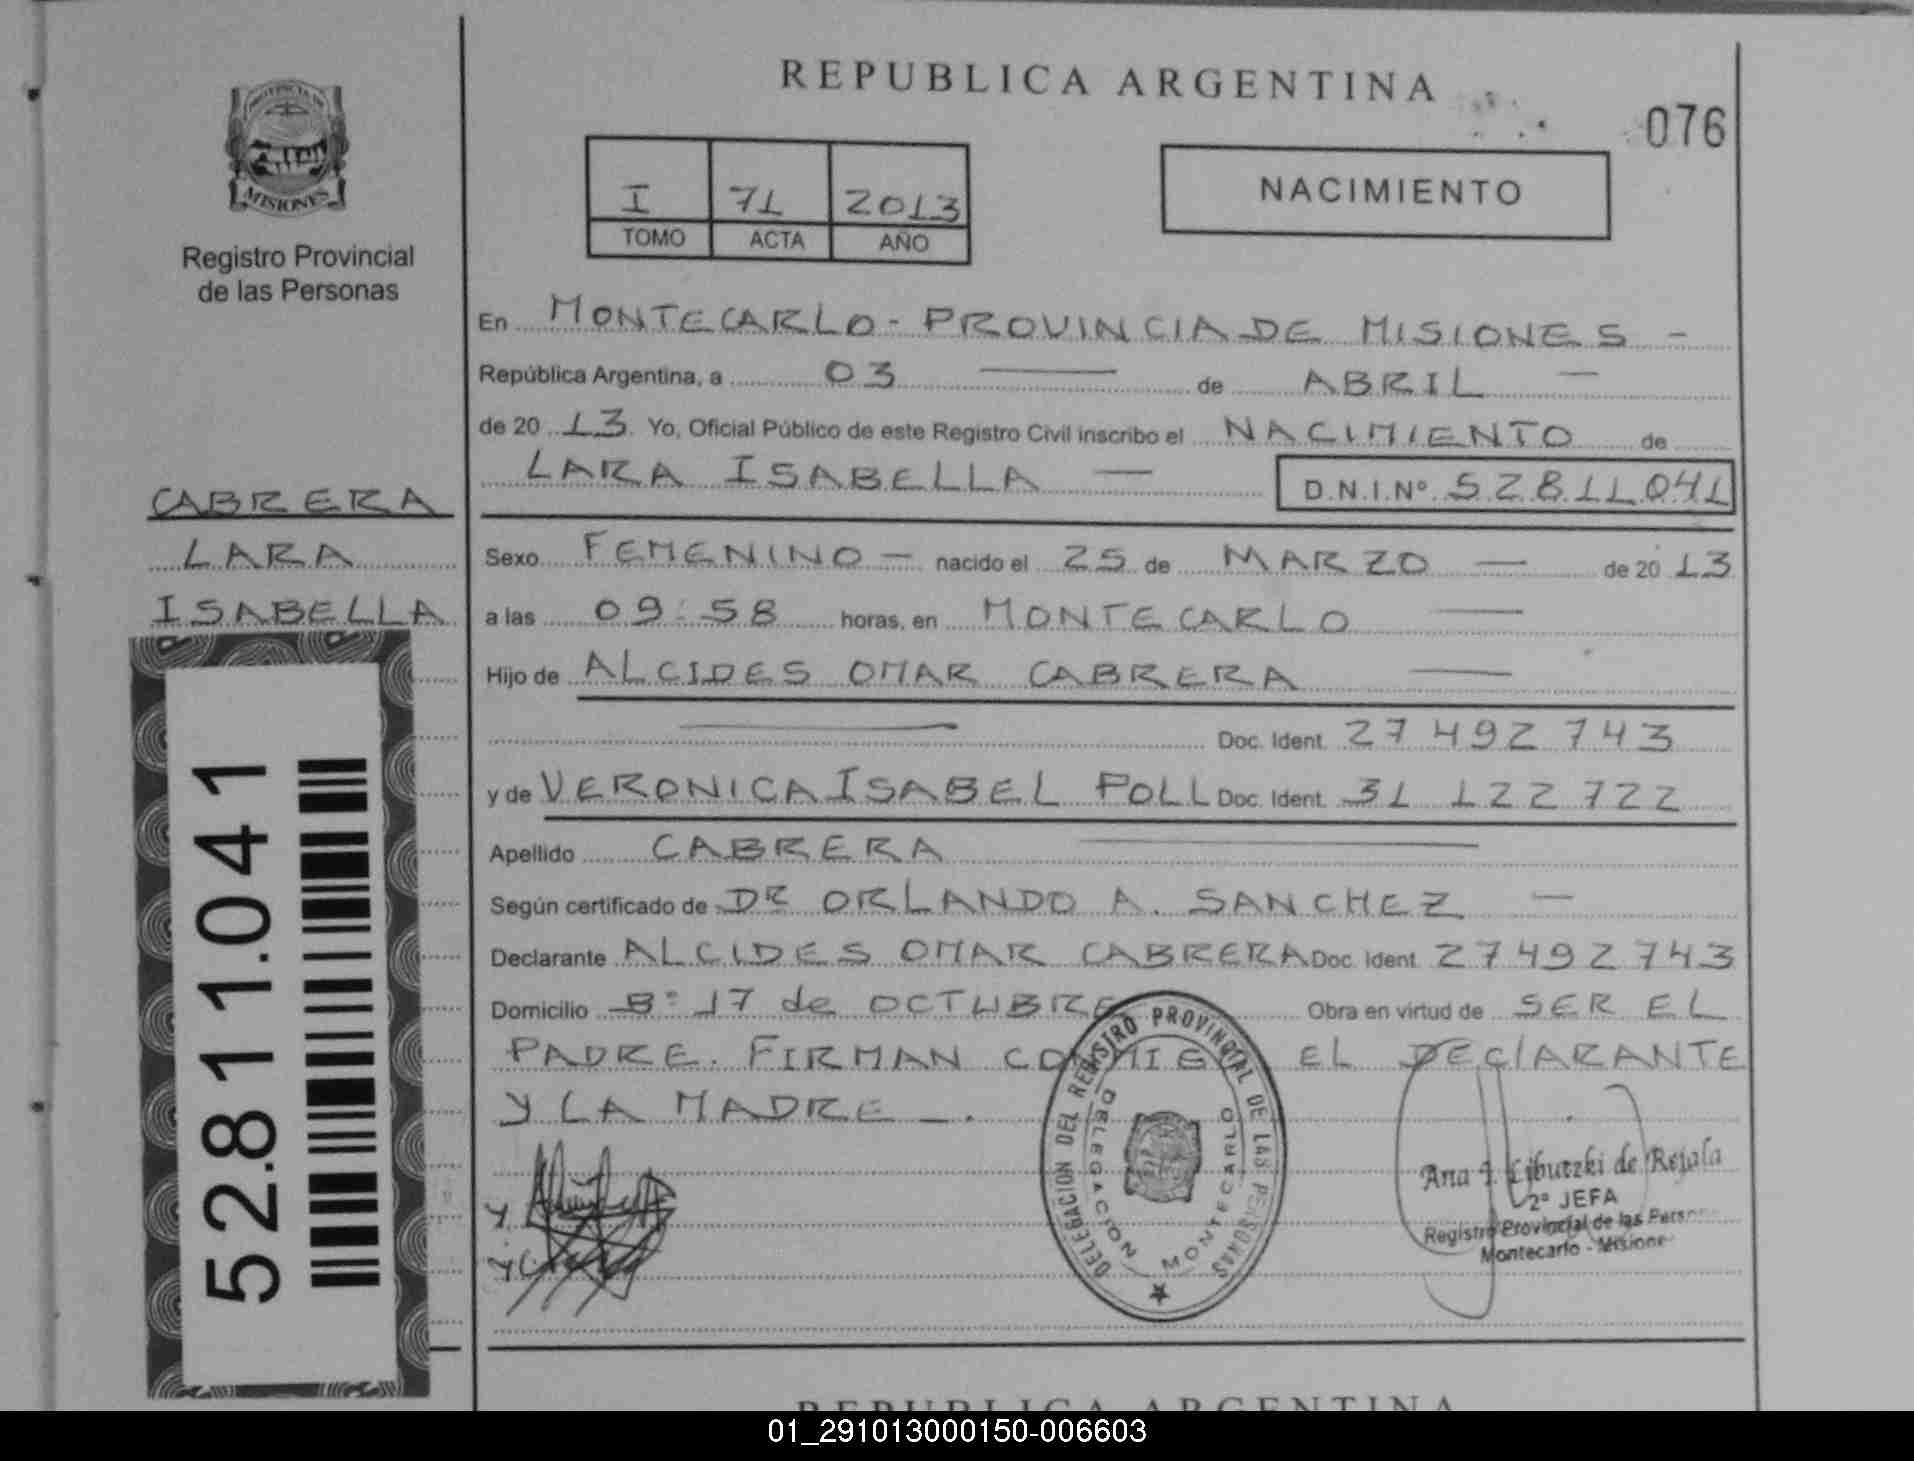 REPUBLICA ARGENTINA
076
PROVINCIA DE
MISIONES
Registro Provincial
de las Personas
I 71 2013
TOMO ACTA AÑO
NACIMIENTO
En MONTECARLO - PROVINCIA DE MISIONES -
República Argentina, a 03 — de ABRIL —
de 20 13 Yo, Oficial Público de este Registro Civil inscribo el NACIMIENTO de
LARA ISABELLA — D.N.I.Nº 52811041
CABRERA
LARA
ISABELLA
52.811.041
Sexo FEMENINO — nacido el 25 de MARZO — de 20 13
a las 09:58 horas, en MONTECARLO —
Hijo de ALCIDES OMAR CABRERA —
— Doc. Ident. 27 492 743
y de VERONICA ISABEL POLL Doc. Ident. 31 122 722
Apellido CABRERA —
Según certificado de DR ORLANDO A. SANCHEZ —
Declarante ALCIDES OMAR CABRERA Doc. Ident. 27492743
Domicilio Bº 17 de OCTUBRE Obra en virtud de SER EL
PADRE. FIRMAN CONMIGO EL DEClARANTE
Y LA MADRE —.
DELEGACION DEL REGISTRO PROVINCIAL DE LAS PERSONAS
DELEGACION MONTECARLO
Ana J. Libutzki de Rejala
2º JEFA
Registro Provincial de las Person
Montecarlo - Misione
REPUBLICA ARGENTINA
01_291013000150-006603